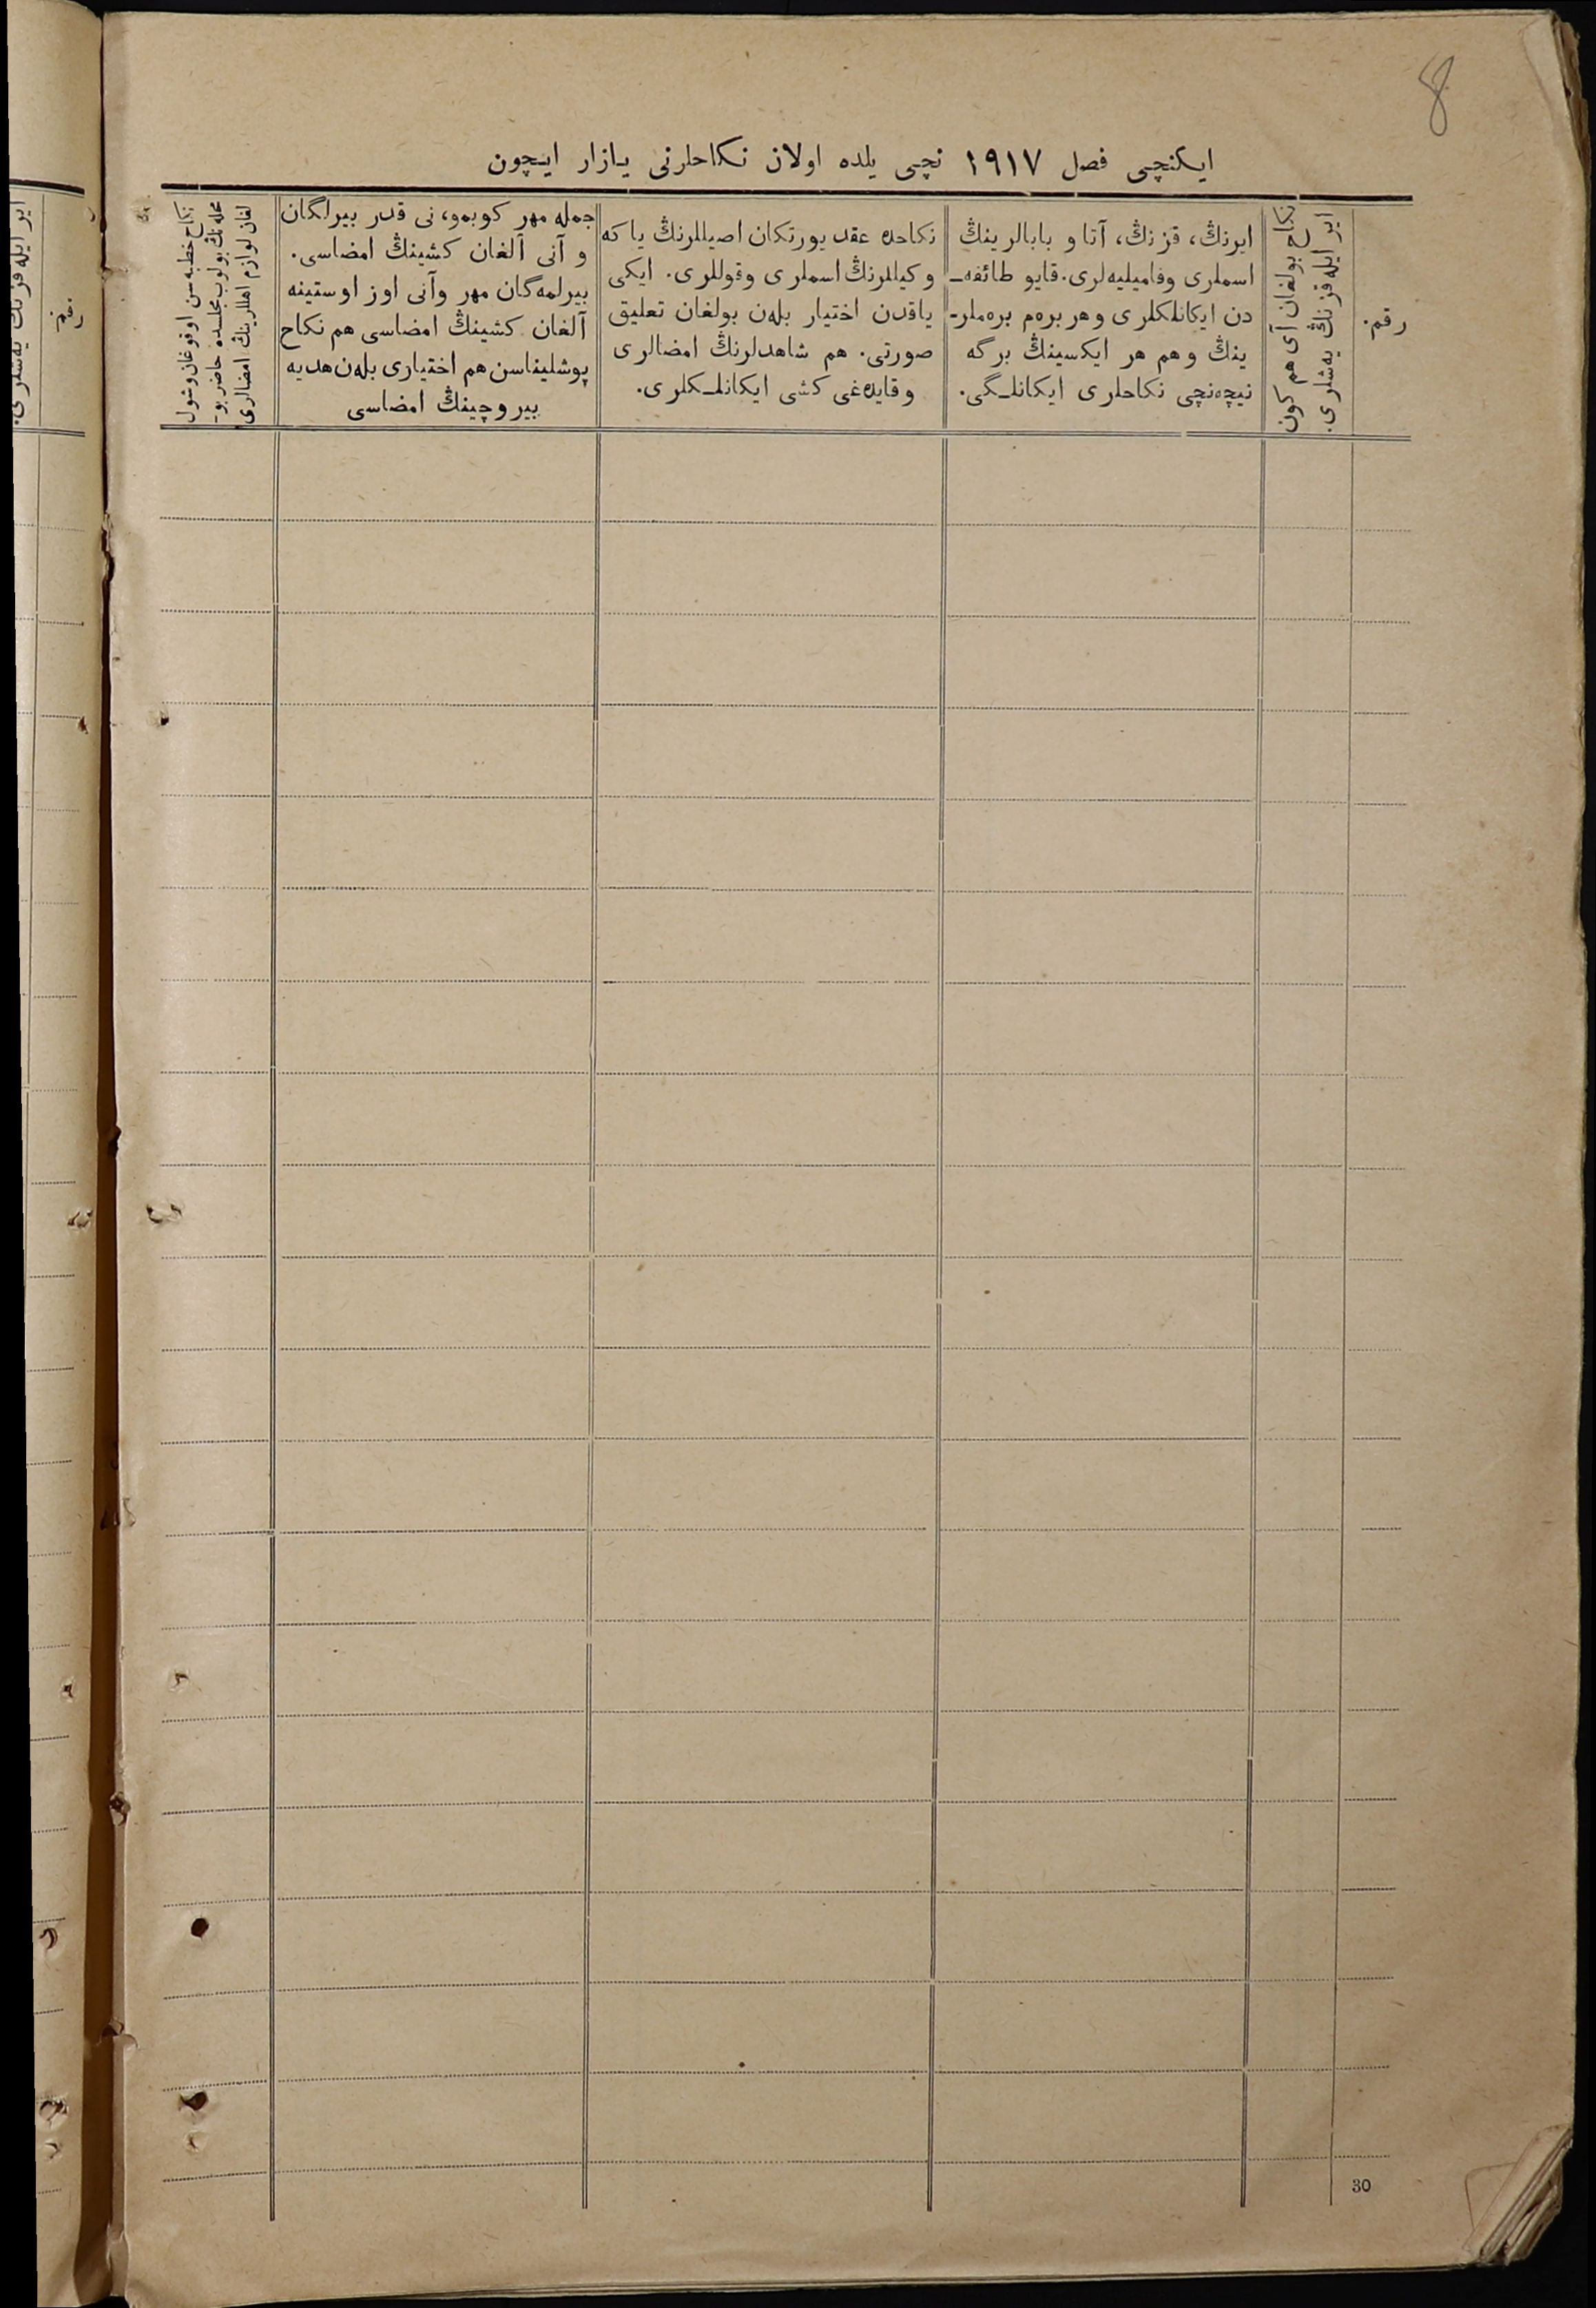 8
ایکنچی فصل ١٩١٧ نچی یلده اولان نکاحلرنی یازار ایچون
رقم.
ایر ایله قزنڭ یه‌شلری.
نکاح بولغان آی هم کون
ایرنڭ، قزنڭ، آتا و بابالرینڭ
اسملری وفامیلیه‌لری. قایو طائفه‌ـ
دن ایکانلکلری وهر بره‌م بره‌ملرـ
ینڭ وهم هر ایکسینڭ برگه
نیچه‌نچی نکاحلری ایکانلـگی.
نکاحده عقد یورتکان اصیللرنڭ یا که
وکیللرنڭ اسملری وقوللری. ایکی
یاقدن اختیار بله‌ن بولغان تعلیق
صورتی. هم شاهدلرنڭ امضالری
وقایده‌غی کشی ایکانلـکلری.
جمله مهر کوبمو، نی قدر بیرلگان
و آنی آلغان کشینڭ امضاسی.
بیرلمه‌گان مهر وآنی اوز اوستینه
آلغان کشینڭ امضاسی هم نکاح
پوشلیناسن هم اختیاری بله‌ن هدیه
بیروچینڭ امضاسی
نکاح خطبه‌سن اوقوغان وشول
محله‌نڭ بولوب مجلسده حاضر بوـ
لغان لوازم اهللرینڭ امضالری
رقم.
ایر ایله قزنڭ یه‌شلری.
30